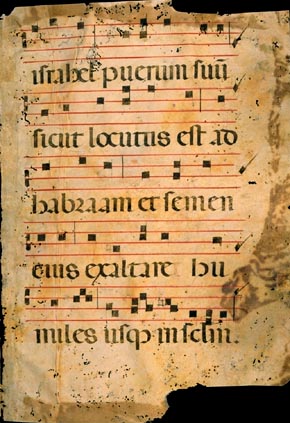 israhel puerum suū
sicut locutus est ad
habraam et semen
eius exaltare hu
miles usqȝ in sclm̄.